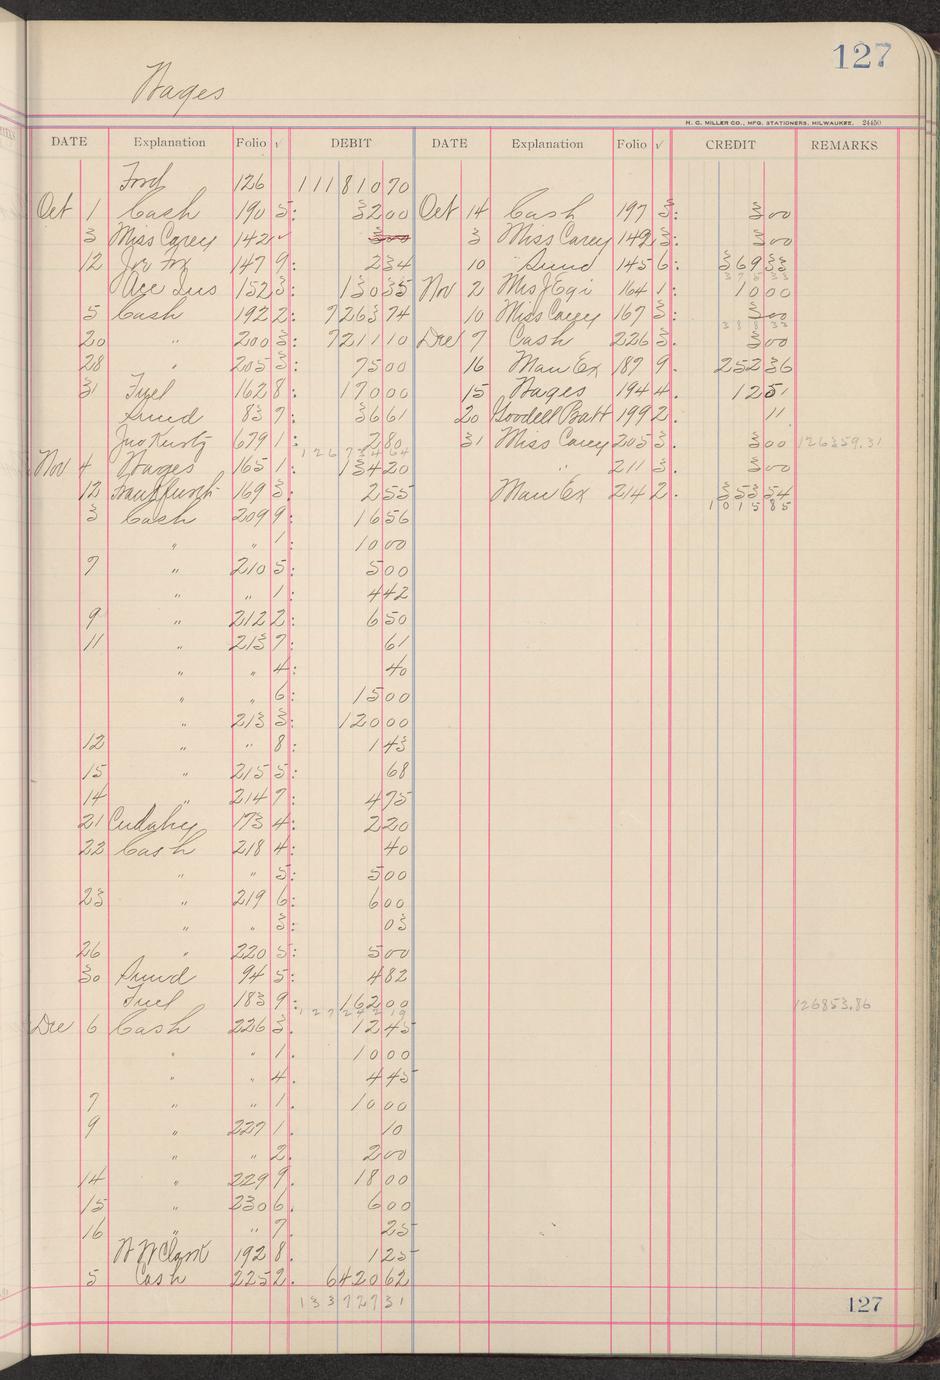 127
Wages
H. C. MILLER CO., MFG. STATIONERS, MILWAUKEE. 24450
DATE Explanation Folio √ DEBIT DATE Explanation Folio √ CREDIT REMARKS
Ford 126 111810 70
Oct 1 Cash 190 5: 32 00 Oct 14 Cash 197 3: 3 00
3 Miss Carey 142 ✓ 3 00 3 Miss Carey 142 3: 3 00
12 Joe Fox 147 9: 2 34 10 Sund 145 6: 369 33
375 33
Acc Ins 152 3: 130 35 Nov 2 Mis J Egi 164 1: 10 00
5 Cash 192 2: 7263 74 10 Miss Carey 167 3: 3 00
388 33
20 " 200 3: 7211 10 Dec 7 Cash 226 3: 3 00
28 " 205 3: 75 00 16 Man Ex 187 9. 252 36
31 Fuel 162 8: 170 00 15 Wages 194 4. 12 51
Sund 83 7: 36 61 20 Goodell Batt 199 2. 11
Jno Kurtz 679 1: 2 80 31 Miss Carey 205 3. 3 00 126359.31
126734 64
Nov 4 Wages 165 1: 134 20 " 211 3. 3 00
12 Frankfurth 169 3: 2 55 Man Ex 214 2. 353 54
1015 85
3 Cash 209 9: 16 56
" " 1: 10 00
7 " 210 5: 5 00
" " 1: 4 42
9 " 212 2: 6 50
11 " 213 7: 61
" " 4: 40
" " 6: 15 00
" 213 3: 120 00
12 " " 8: 1 43
15 " 215 5: 68
14 " 214 7: 4 75
21 Cudahy 173 4: 2 20
22 Cash 218 4: 40
" " 5: 5 00
23 " 219 6: 6 00
" " 3: 03
26 " 220 5: 5 00
30 Sund 94 5: 4 82
Fuel 183 9: 162 00 126853.86
127242 19
Dec 6 Cash 226 3. 12 45
" " 1. 10 00
" " 4. 4 45
7 " " 1. 10 00
9 " 227 1. 10
" " 2. 2 00
14 " 229 9. 18 00
15 " 230 6. 6 00
16 " " 7. 25
W W Clark 192 8. 1 25
5 Cash 225 2. 6420 62
133727 31
127